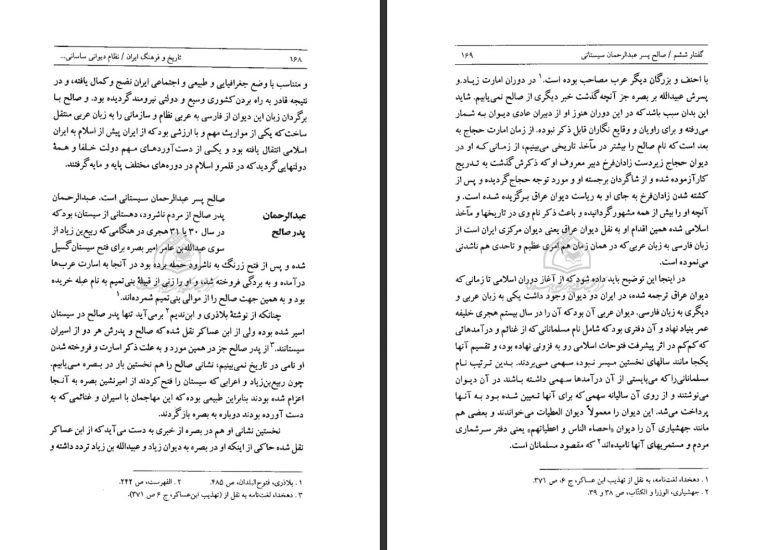 ۱۶۸
تاریخ و فرهنگ ایران / نظام دیوانی ساسانی...
و متناسب با وضع جغرافیایی و طبیعی و اجتماعی ایران نضج و کمال یافته، و در
نتیجه قادر به راه بردن کشوری وسیع و دولتی نیرومند گردیده بود. و صالح با
برگردان زبان این دیوان از فارسی به عربی نظام و سازمانی را به زبان عربی منتقل
ساخت که یکی از مواریث مهم و با ارزشی بود که از ایران پیش از اسلام به ایران
اسلامی انتقال یافته بود و یکی از دست‌آوردهای مهم دولت خلفا و همهٔ
دولتهایی گردید که در قلمرو اسلام در دوره‌های مختلف پایه و مایه گرفتند.
عبدالرحمان
پدر صالح
صالح پسر عبدالرحمان سیستانی است. عبدالرحمان
پدر صالح از مردم ناشرود، دهستانی از سیستان، بود که
در سال ۳۰ یا ۳۱ هجری در هنگامی که ربیع‌بن زیاد از
سوی عبدالله‌بن عامر امیر بصره برای فتح سیستان گسیل
شده و پس از فتح زرنگ به ناشرود حمله برده بود در آنجا به اسارت عرب‌ها
درآمده و به بردگی فروخته شد، و او را زنی از قبیلهٔ بنی‌تمیم به نام عبله خریده
بود و به همین جهت صالح را از موالی بنی‌تمیم شمرده‌اند.۱
چنانکه از نوشتهٔ بلاذری و ابن‌ندیم۲ برمی‌آید تنها پدر صالح در سیستان
اسیر شده بوده ولی از ابن عساکر نقل شده که صالح و پدرش هر دو از اسیران
سیستانند.۳ از پدر صالح جز در همین مورد و به علت ذکر اسارت و فروخته شدن
او نامی در تاریخ نمی‌بینیم، نشانی صالح را هم نخستین بار در بصره می‌یابیم.
چون ربیع‌بن‌زیاد و اعرابی که سیستان را فتح کردند از امیرنشین بصره به آنجا
اعزام شده بودند بنابراین طبیعی بوده که این مهاجمان با اسیران و غنائمی که به
دست آورده بودند دوباره به بصره بازگردند.
نخستین نشانی او هم در بصره از خبری به دست می‌آید که از ابن عساکر
نقل شده حاکی از اینکه او در بصره به دیوان زیاد و عبیدالله بن زیاد تردد داشته و
۱ . بلاذری، فتوح‌البلدان، ص ۴۸۵. ۲ . الفهرست، ص ۲۴۲.
۳ . دهخدا، لغت‌نامه به نقل از (تهذیب ابن‌عساکر، ج ۶ ص ۳۷۱).
گفتار ششم / صالح پسر عبدالرحمان سیستانی
۱۶۹
با احنف و بزرگان دیگر عرب مصاحب بوده است.۱ در دوران امارت زیاد و
پسرش عبیدالله بر بصره جز آنچه گذشت خبر دیگری از صالح نمی‌یابیم. شاید
این بدان سبب باشد که در این دوران هنوز او از دبیران عادی دیوان به شمار
می‌رفته و برای راویان و وقایع نگاران قابل ذکر نبوده. از زمان امارت حجاج به
بعد است که نام صالح را بیشتر در مآخذ تاریخی می‌بینیم، از زمانی که او در
دیوان حجاج زیردست زادان‌فرخ دبیر معروف او که ذکرش گذشت به تدریج
کارآزموده شده و از شاگردان برجسته او و مورد توجه حجاج گردیده و پس از
کشته شدن زادان‌فرخ به جای او به ریاست دیوان عراق برگزیده شده است. و
آنچه او را بیش از همه مشهور گردانیده و باعث ذکر نام وی در تاریخها و مآخذ
اسلامی شده همین اقدام او به نقل دیوان عراق یعنی دیوان مرکزی ایران است از
زبان فارسی به زبان عربی که در همان زمان هم امری عظیم و تاحدی هم ناشدنی
می‌نموده است.
در اینجا این توضیح باید داده شود که از آغاز دوران اسلامی تا زمانی که
دیوان عراق ترجمه شده، در ایران دو دیوان وجود داشت یکی به زبان عربی و
دیگری به زبان فارسی. دیوان عربی آن بود که آن را در سال بیستم هجری خلیفه
عمر بنیاد نهاد و آن دفتری بود که شامل نام مسلمانانی که از غنائم و درآمدهائی
که کم‌کم در اثر پیشرفت فتوحات اسلامی رو به فزونی نهاده بود، و تقسیم آنها
یکجا مانند سالهای نخستین میسر نبود، سهمی می‌بردند. بدین ترتیب نام
مسلمانانی را که می‌بایستی از آن درآمدها سهمی داشته باشند در آن دیوان
می‌نوشتند و از روی آن سالیانه سهمی که برای آنها تعیین شده بود به آنها
پرداخت می‌شد. این دیوان را معمولاً دیوان العطیات می‌خواندند و بعضی هم
مانند جهشیاری آن را دیوان «احصاء الناس و اعطیاتهم» یعنی دفتر سرشماری
مردم و مستمریهای آنها نامیده‌اند۲ که مقصود مسلمانان است.
۱ . دهخدا، لغت‌نامه، به نقل از تهذیب ابن عساکر، ج ۶، ص ۳۷۱.
۲ . جهشیاری، الوزرا و الکتّاب، ص ۳۸ و ۳۹.